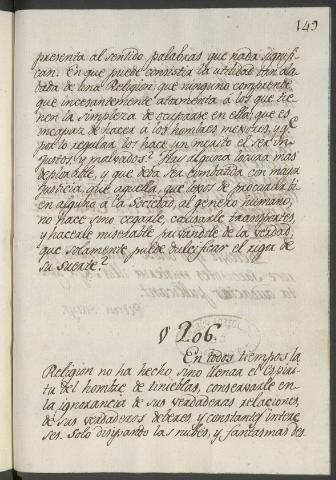 149
presenta al sentido palabras que nada signifi-
can. En que puede consistir la utilidad tan ala-
bada de una Religion, que ninguno comprende,
que incesantemente atormenta a los que tie-
nen la simpleza de ocuparse en ella; que es
incapaz de hacer a los hombres mejores, y qe
por lo regular los hace un merito el ser in-
justos, y malvados? Hay alguna locura mas
deplorable, y que deba ser combatida con mayor
justicia, que aquella, que lejos de procurar bi-
en alguno a la Sociedad, al genero humano,
no hace sino cegarle, causarle transportes,
y hacerle miserable privandole de la verdad,
que solamente puede dulcificar el rigor de
su suerte?
§ 206.
En todos tiempos la
Religion no ha hecho sino llenar el espiri-
tu del hombre de tinieblas, conservarle en
la ignorancia de sus verdaderas relaciones,
de sus verdaderos deberes, y constantes intere
ses. Solo disipando las nubes, y fantasmas des